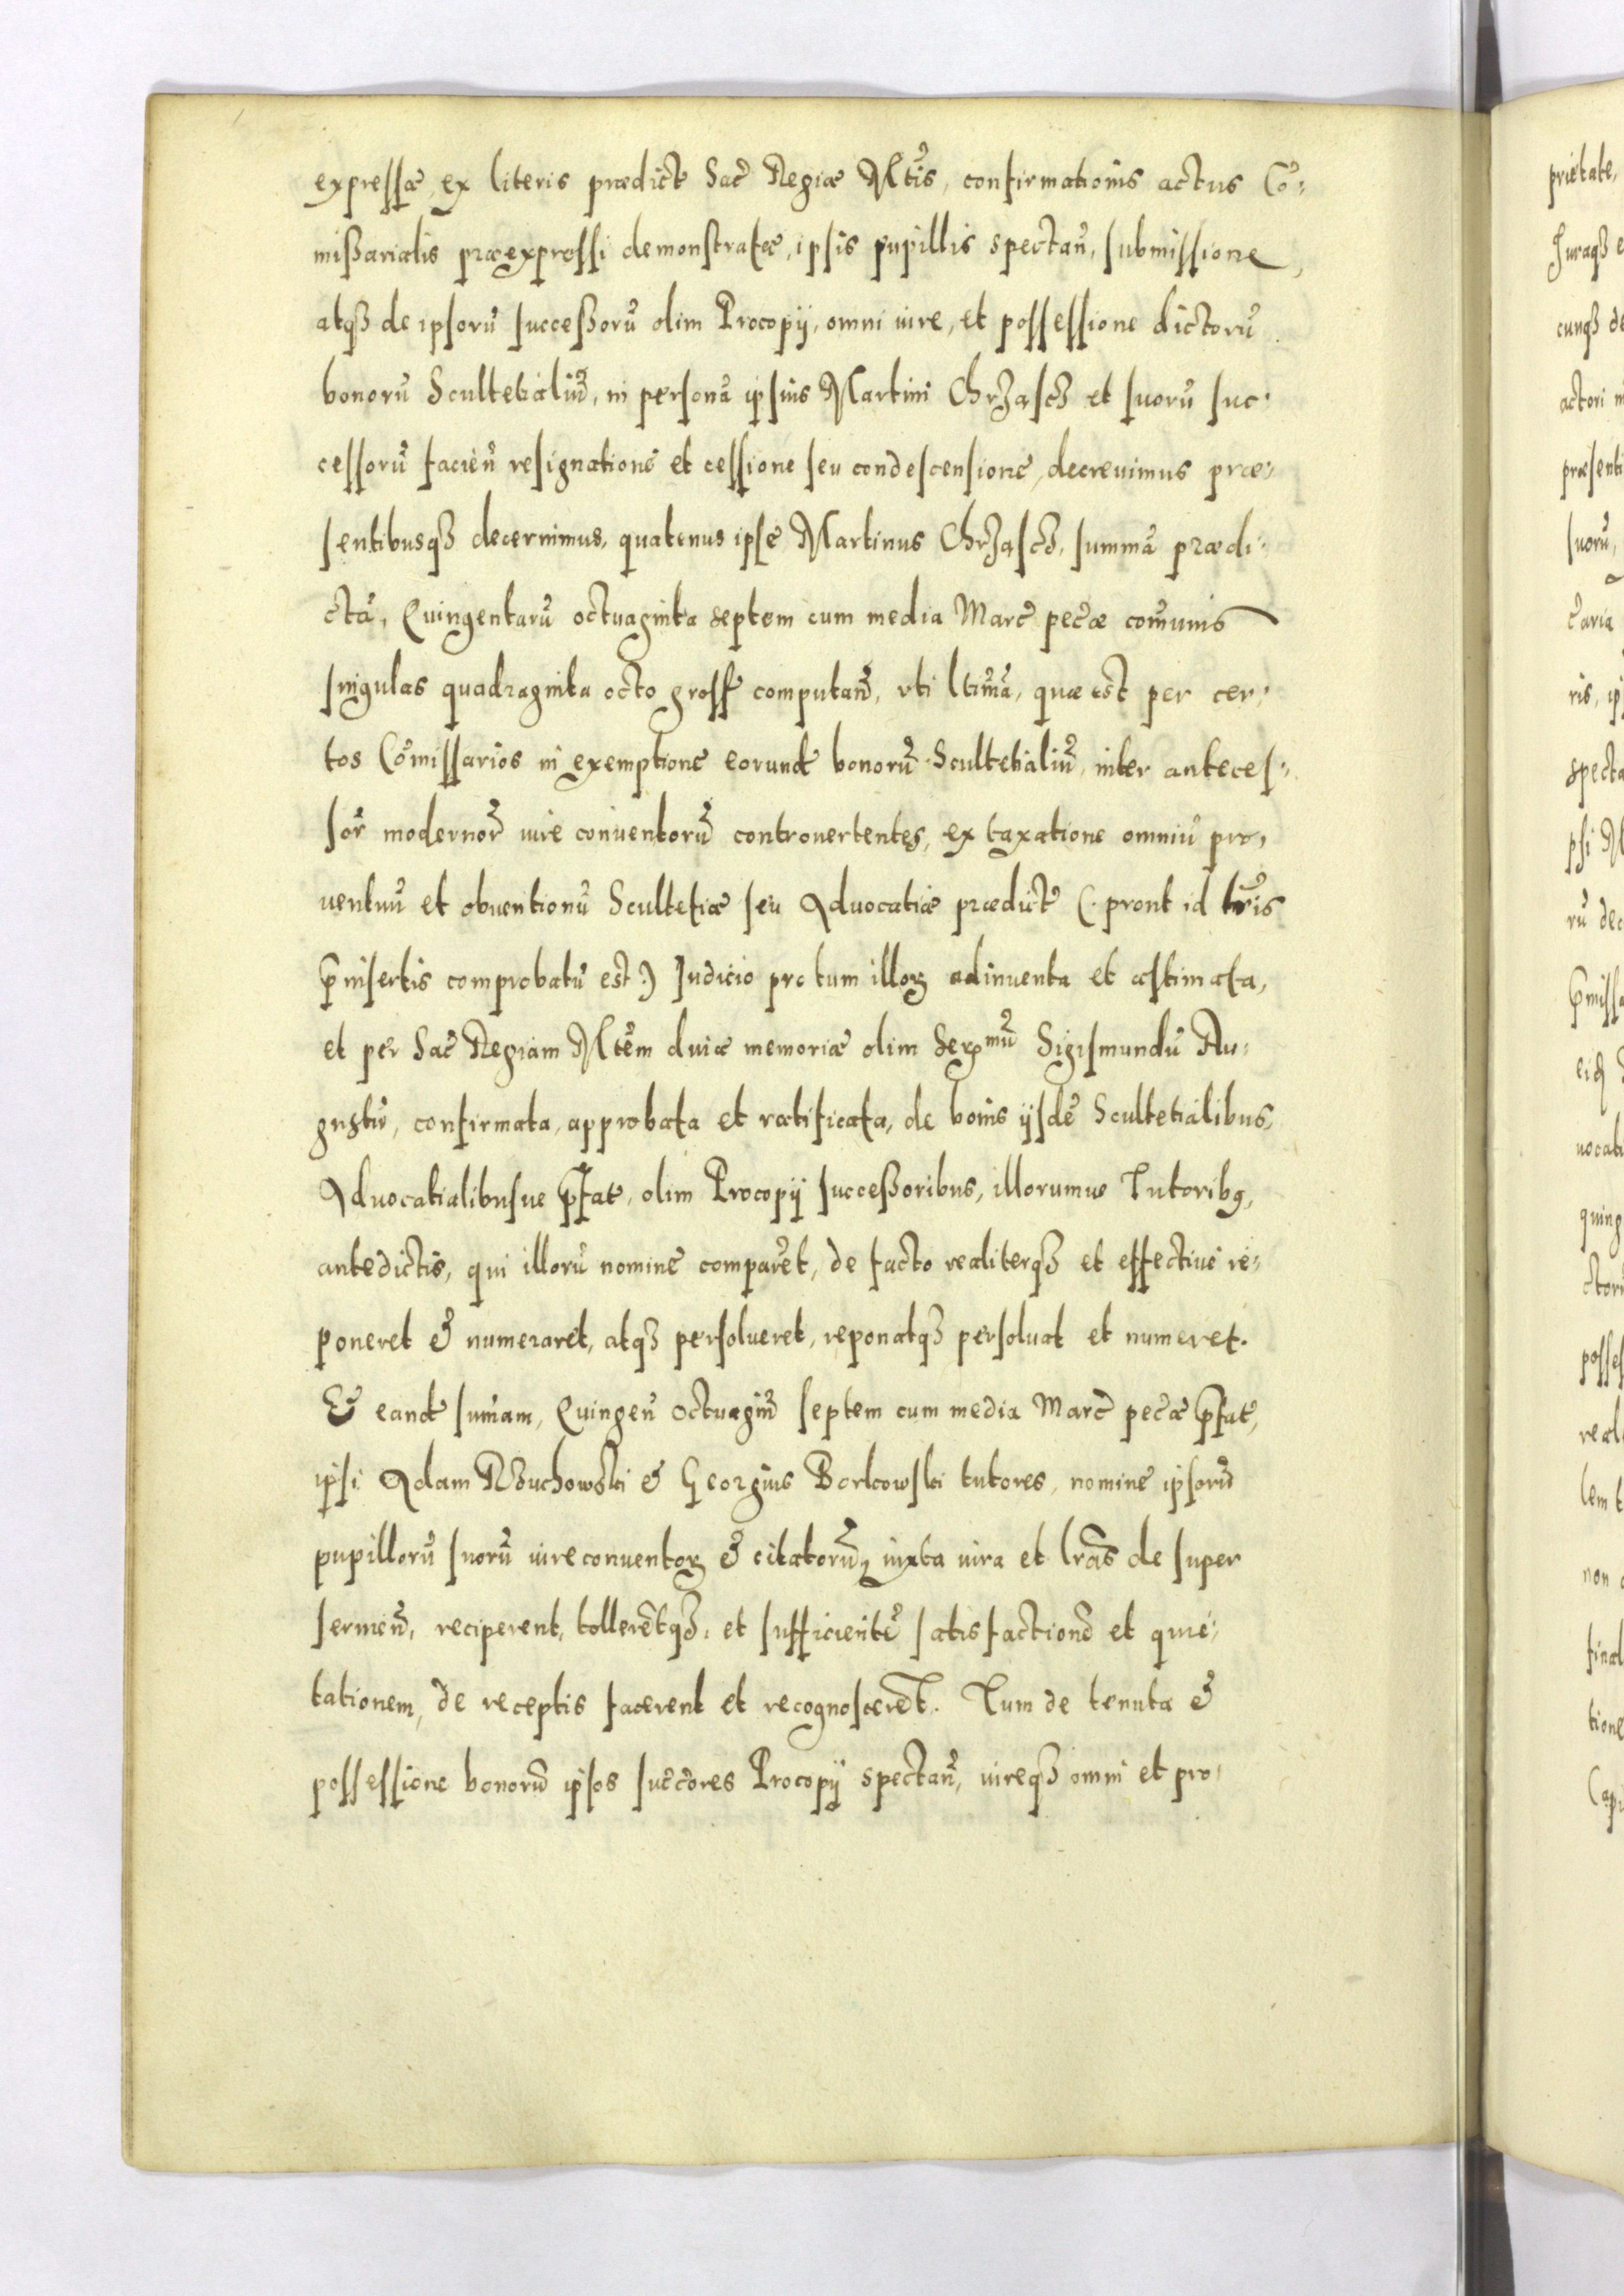 expressæ, ex literis prædict Sac̃ Regiæ Mt̃is, confirmationis actus Cõ-
mißarialis præexpressi demonstratæ, ipsis pupillis spectan̄, submissione,
atqꝫ de ipsorū succeßorū olim Procopij, omni iure, et possessione dictorū
bonorū Scultetialiū, in personā ipsius Martini Chrząsch et suorū suc-
cessorū facien̄ resignatione et cessione seu condescensione, decrevimus præ-
sentibusqꝫ decernimus, quatenus ipse Martinus Chrząsch, summā prædi-
ctā, Quingentarū octuaginta septem cum media Marc̃ pec̃æ com̃unis
singulas quadraginta octo gross computan̄, vti ltĩmā, quæ est per cer-
tos Com̃issarios in exemptione eorund bonorū Scultetialiū, inter anteces-
sor̃ modernor̃ iure conuentorū controuertentes, ex taxatione omniū pro-
uentuū et obuentionū Scultetiæ seu Aduocatiæ prædict (: prout id lr̃is
p̄insertis comprobatū est :) Judicio pro tum illoꝝ adinuenta et æstimata,
et per Sac̃ Regiam Mt̃em diuæ memoriæ olim Serᵐᵘ̄ Sigismundū Au-
gustū, confirmata, approbata et ratificata, de bonis ijsdē Scultetialibus,
Aduocatialibusue p̄fat, olim Procopij succeßoribus, illorumue Tutoribꝯ,
antedictis, qui illorū nomine comparẽt, de facto realiterqꝫ et effectiue re-
poneret & numeraret, atqꝫ persolueret, reponatqꝫ persoluat et numeret.
Et eand sum̃am, Quingen̄ octuagin̄ septem cum media Marc̃ pec̃æ p̄fat,
ipsi Adam Wouchowski & Georgius Borkowski tutores, nomine ipsorū
pupillorū suorū iure conuentoꝝ & citatorū, iuxta iura et lr̃as de super
seruien̄, reciperent, tollerẽtqꝫ, et sufficientē satisfactionē et quie-
tationem, de receptis facerent et recognoscerẽt. Tum de tenuta &
possessione bonorū ipsos suc̃c̃ores Procopij spectan̄, iureqꝫ omni et pro-